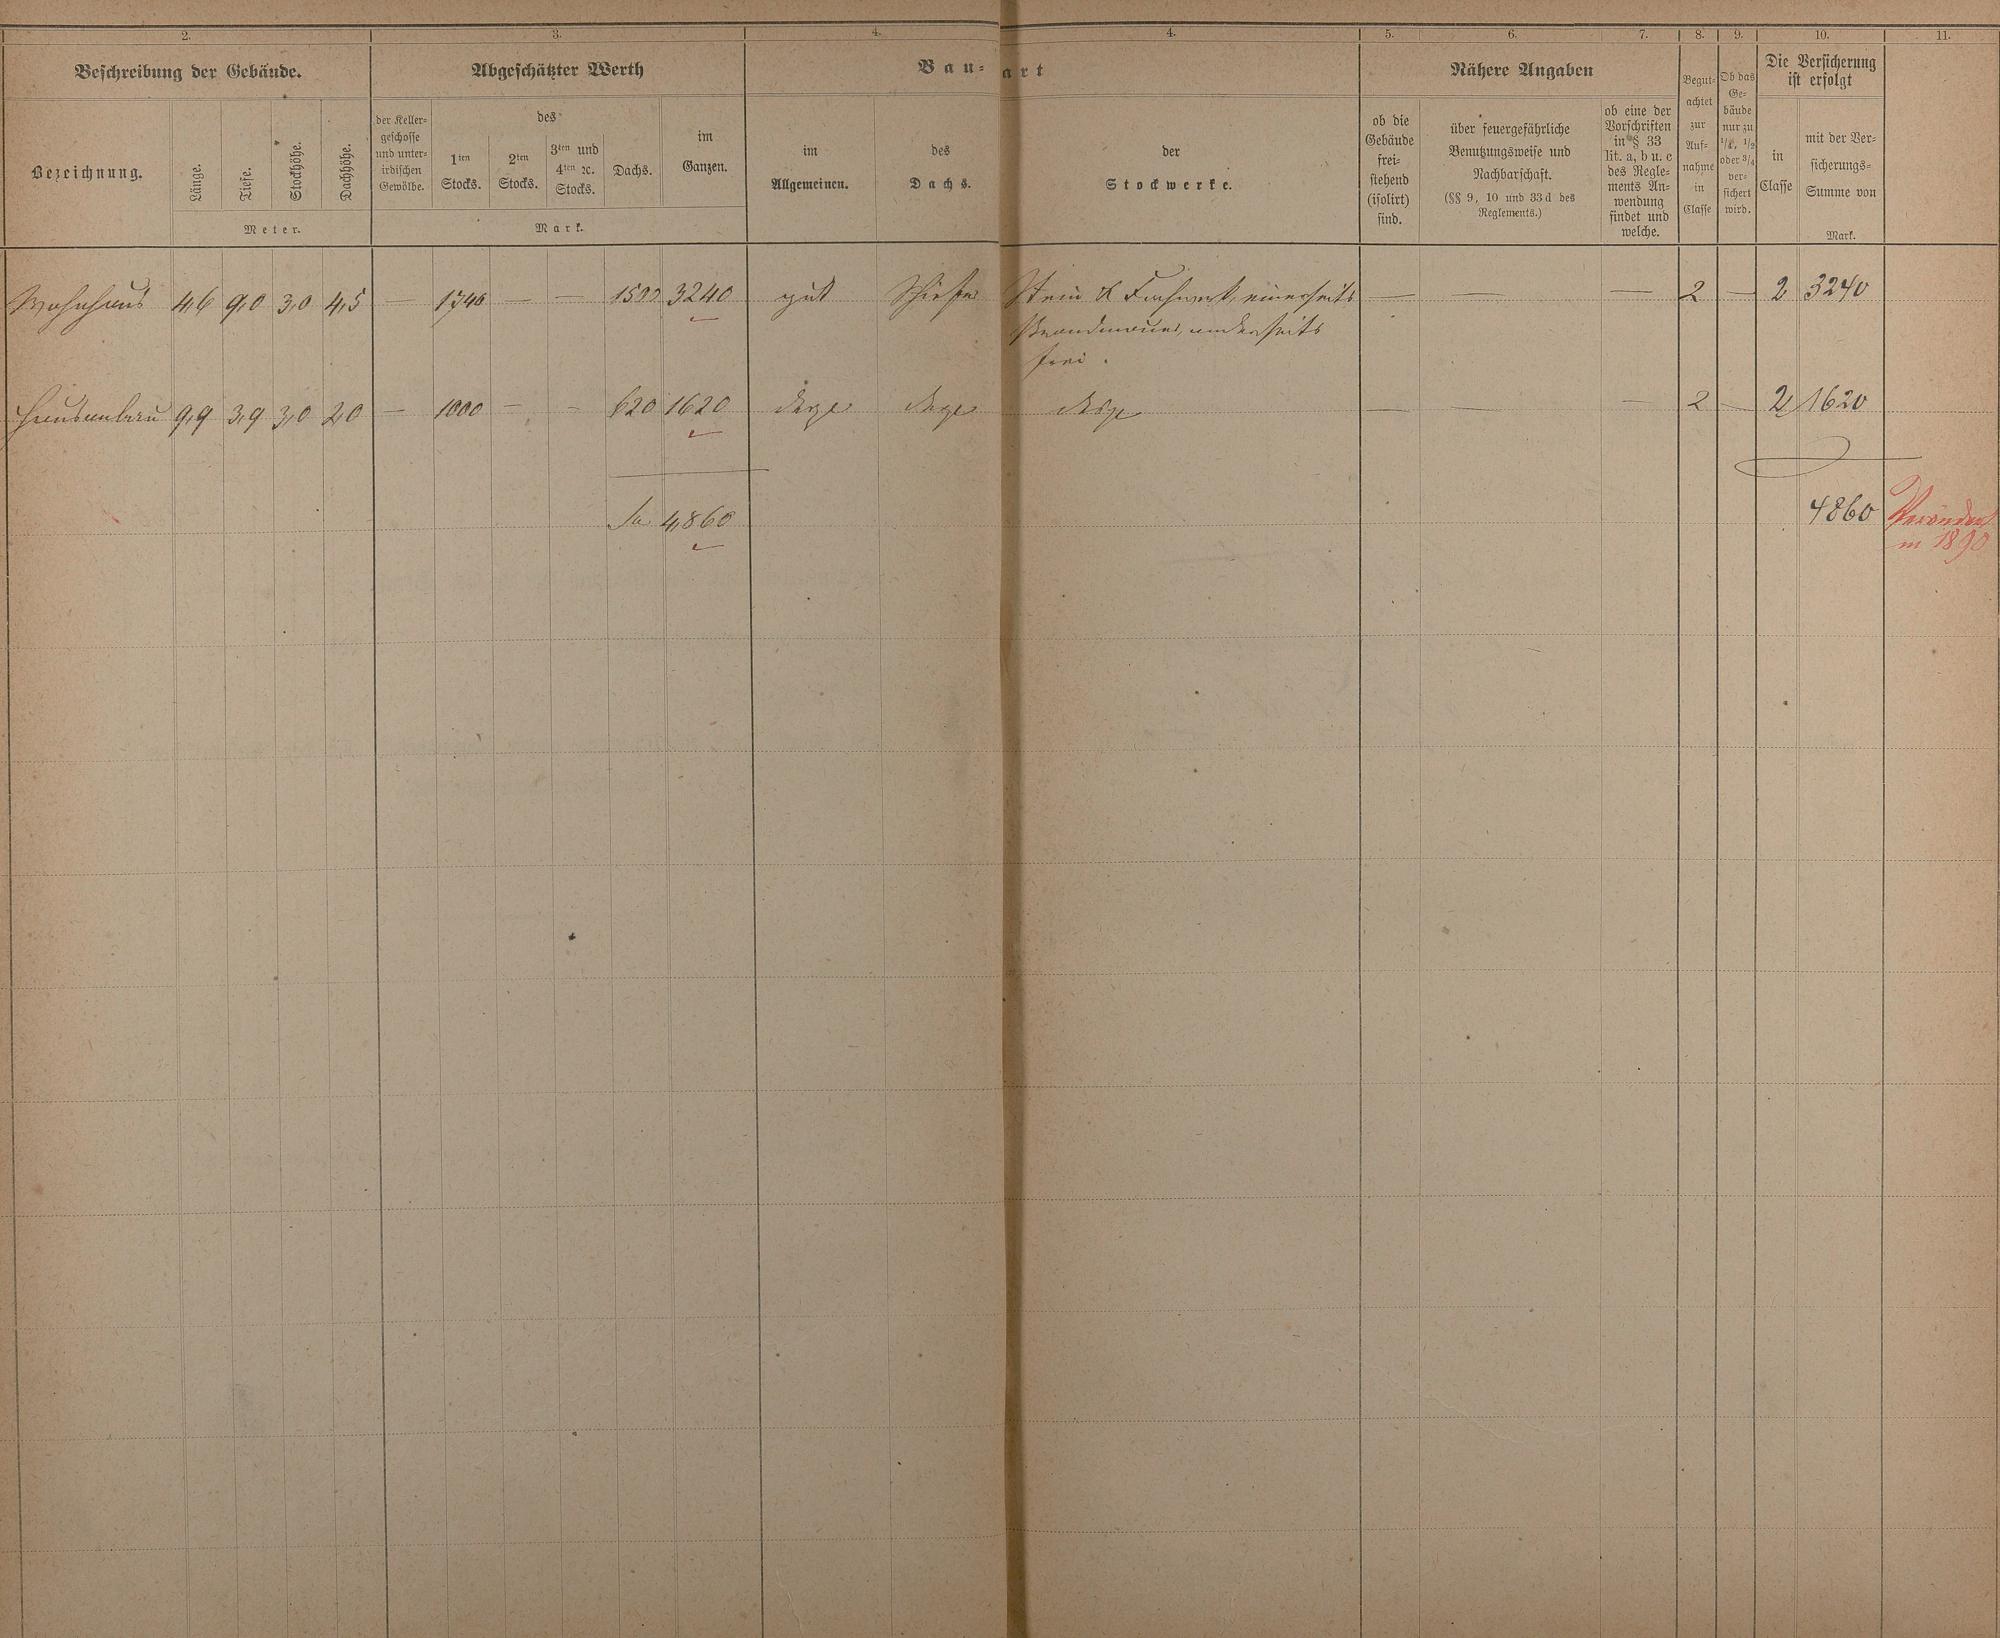 2. 3. 4. 4. 5. 6. 7. 8. 9. 10. 11.
Beschreibung der Gebäude. Abgeschätzter Werth Bau- art Nähere Angaben Die Versicherung
ist erfolgt
Bezeichnung. Länge. Tiefe. Stockhöhe. Dachhöhe.
Meter.
der Keller-
geschosse
und unter-
irdischen
Gewölbe.
des
1ten
Stocks.
2ten
Stocks.
3ten und
4ten ꝛc.
Stocks.
Dachs.
im
Ganzen.
Mark.
im
Allgemeinen.
des
Dachs.
der
Stockwerke.
ob die
Gebäude
frei-
stehend
(isolirt)
sind.
über feuergefährliche
Benutzungsweise und
Nachbarschaft.
(§§ 9, 10 und 33 d des
Reglements.)
ob eine der
Vorschriften
in § 33
lit. a, b u. c
des Regle-
ments An-
wendung
findet und
welche.
Begut-
achtet
zur
Auf-
nahme
in
Classe
Ob das
Ge-
bäude
nur zu
1/4, 1/2
oder 3/4
ver-
sichert
wird.
in
Classe
mit der Ver-
sicherungs-
Summe von
Mark.
Wohnhaus 4,6 9,0 3,0 4,5 — 1740 — — 1500 3240 gut Schiefer Stein & Fachwerk, einerseits — — — 2 — 2 3240
Brandmauer, anderseits
frei.
Hausanbau 9,9 3,9 3,0 2,0 — 1000 — — 620 1620 desgl desgl desgl — — — 2 — 2 1620
Sa 4,860 4860 Verändert
in 1890